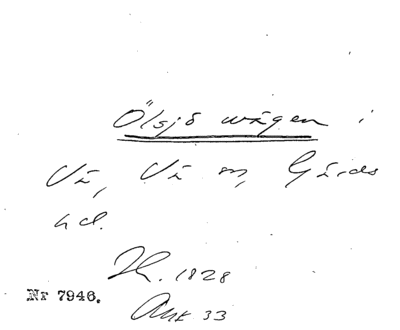 Ölsjö vägen i
Vä, Vä sn, Gärds
hd.
Th. 1828
Nr 7946.
Ank 33